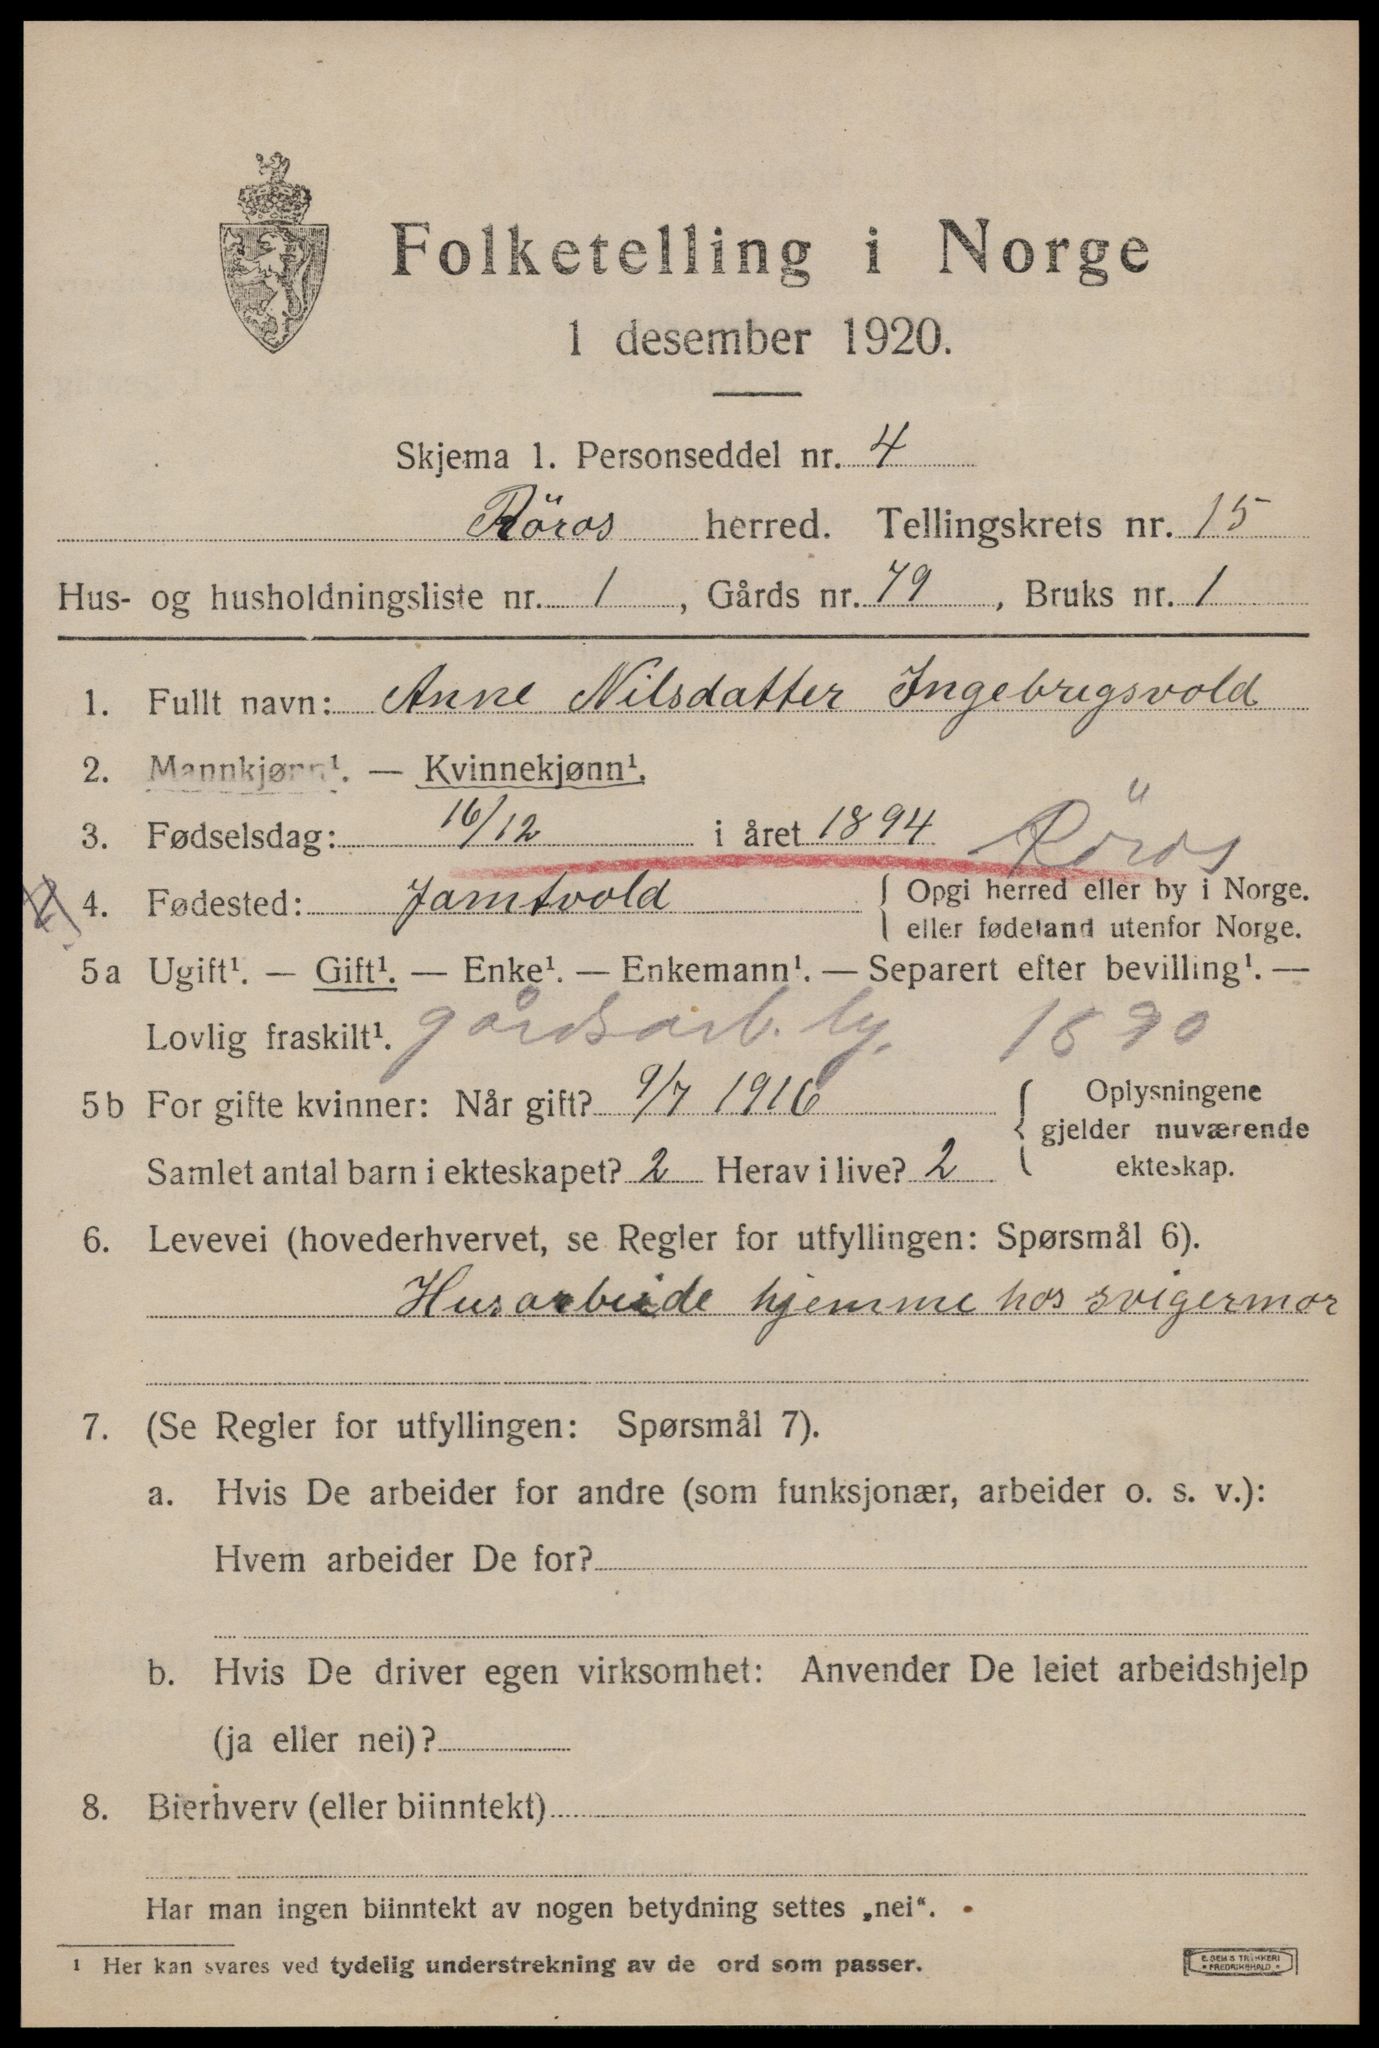 Folketelling i Norge
1 desember 1920.
Skjema 1. Personseddel nr. 4
Röros herred. Tellingskrets nr. 15
Hus- og husholdningsliste nr. 1, Gårds nr. 79, Bruks nr. 1
1. Fullt navn: Anne Nilsdatter Ingebrigsvold
2. Mannkjønn¹. — Kvinnekjønn¹.
3. Fødselsdag: 16/12 i året 1894 Röros
4. Fødested: Jamtvold { Opgi herred eller by i Norge.
eller fødeland utenfor Norge.
5a Ugift¹. — Gift¹. — Enke¹. — Enkemann¹. — Separert efter bevilling¹. —
Lovlig fraskilt¹. gårdsarb. 1890
5b For gifte kvinner: Når gift? 9/7 1916 { Oplysningene
gjelder nuværende
ekteskap.
Samlet antal barn i ekteskapet? 2 Herav i live? 2
6. Levevei (hovederhvervet, se Regler for utfyllingen: Spørsmål 6).
Husarbeide hjemme hos svigermor
7. (Se Regler for utfyllingen: Spørsmål 7).
a. Hvis De arbeider for andre (som funksjonær, arbeider o. s. v.):
Hvem arbeider De for?
b. Hvis De driver egen virksomhet: Anvender De leiet arbeidshjelp
(ja eller nei)?
8. Bierhverv (eller biinntekt)
Har man ingen biinntekt av nogen betydning settes „nei“.
¹ Her kan svares ved tydelig understrekning av de ord som passer.
E. SEM'S TRYKKERI
FREDRIKSHALD